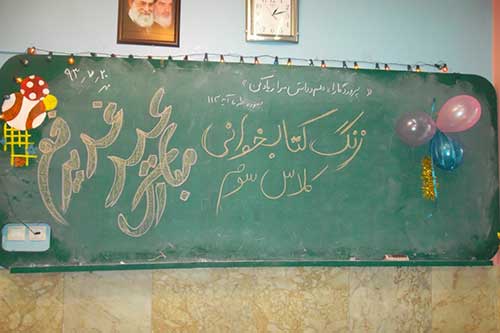 « پروردگارا، علم و دانش مرا زیاد کن »
سوره طه آیه ۱۱۴
زنگ کتابخوانی
کلاس سوم
۹۳/۷/۲۰
عید غدیر خم
مبارک